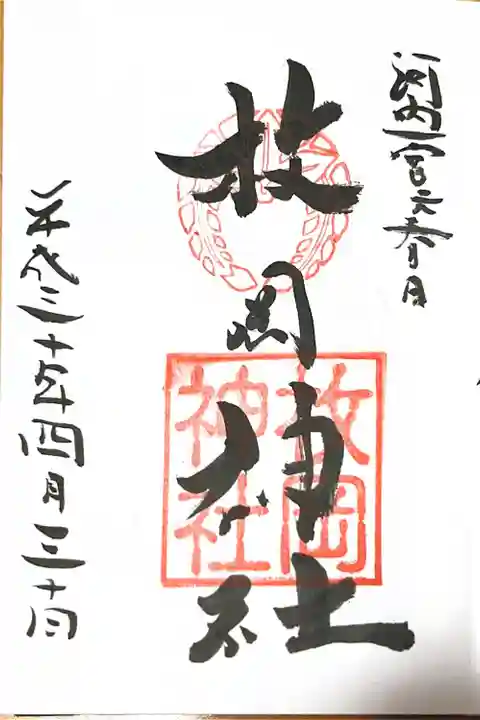 河内一宮元春日
枚岡神社
枚岡神社
平成三十一年四月三十日